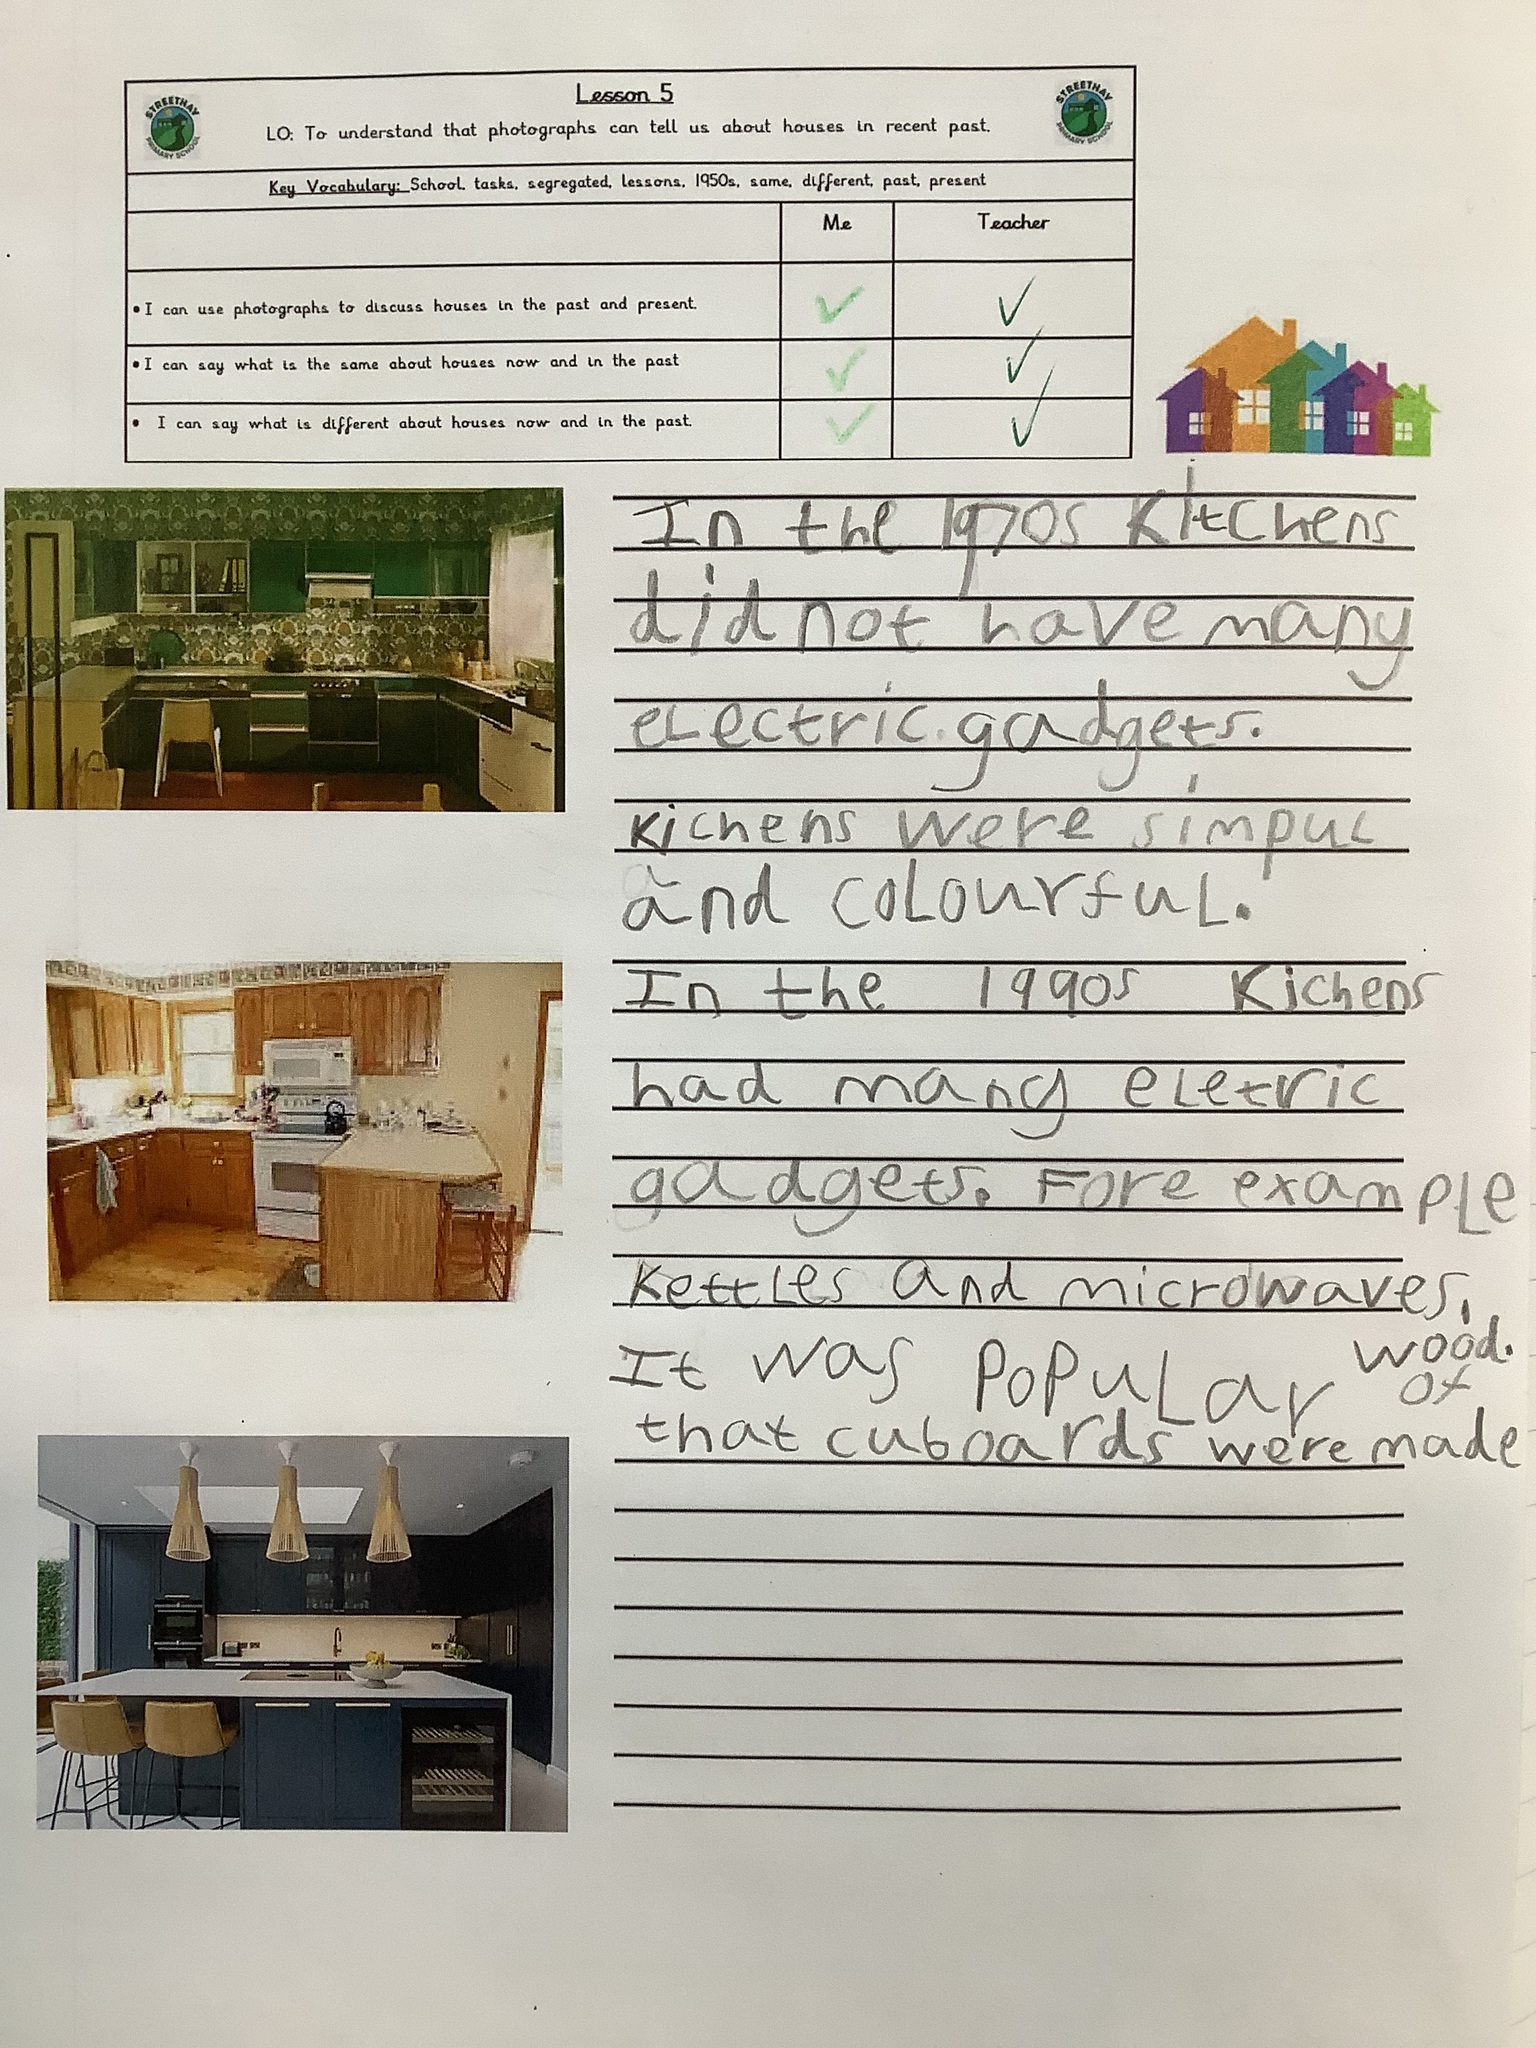 Lesson 5
STREETHAY PRIMARY SCHOOL
LO: To understand that photographs can tell us about houses in recent past.
STREETHAY PRIMARY SCHOOL
Key Vocabulary: School, tasks, segregated, lessons, 1950s, same, different, past, present
Me
Teacher
• I can use photographs to discuss houses in the past and present.
• I can say what is the same about houses now and in the past
• I can say what is different about houses now and in the past.
In the 1970s Kitchens
did not have many
eLectric.gadgets.
Kichens were simpul
and coLourfuL.
In the 1990s Kichens
had many eLetric
gadgets. Fore exampLe
KettLes and microwaves.
It was PoPuLar
that cuboards were made
of
wood.